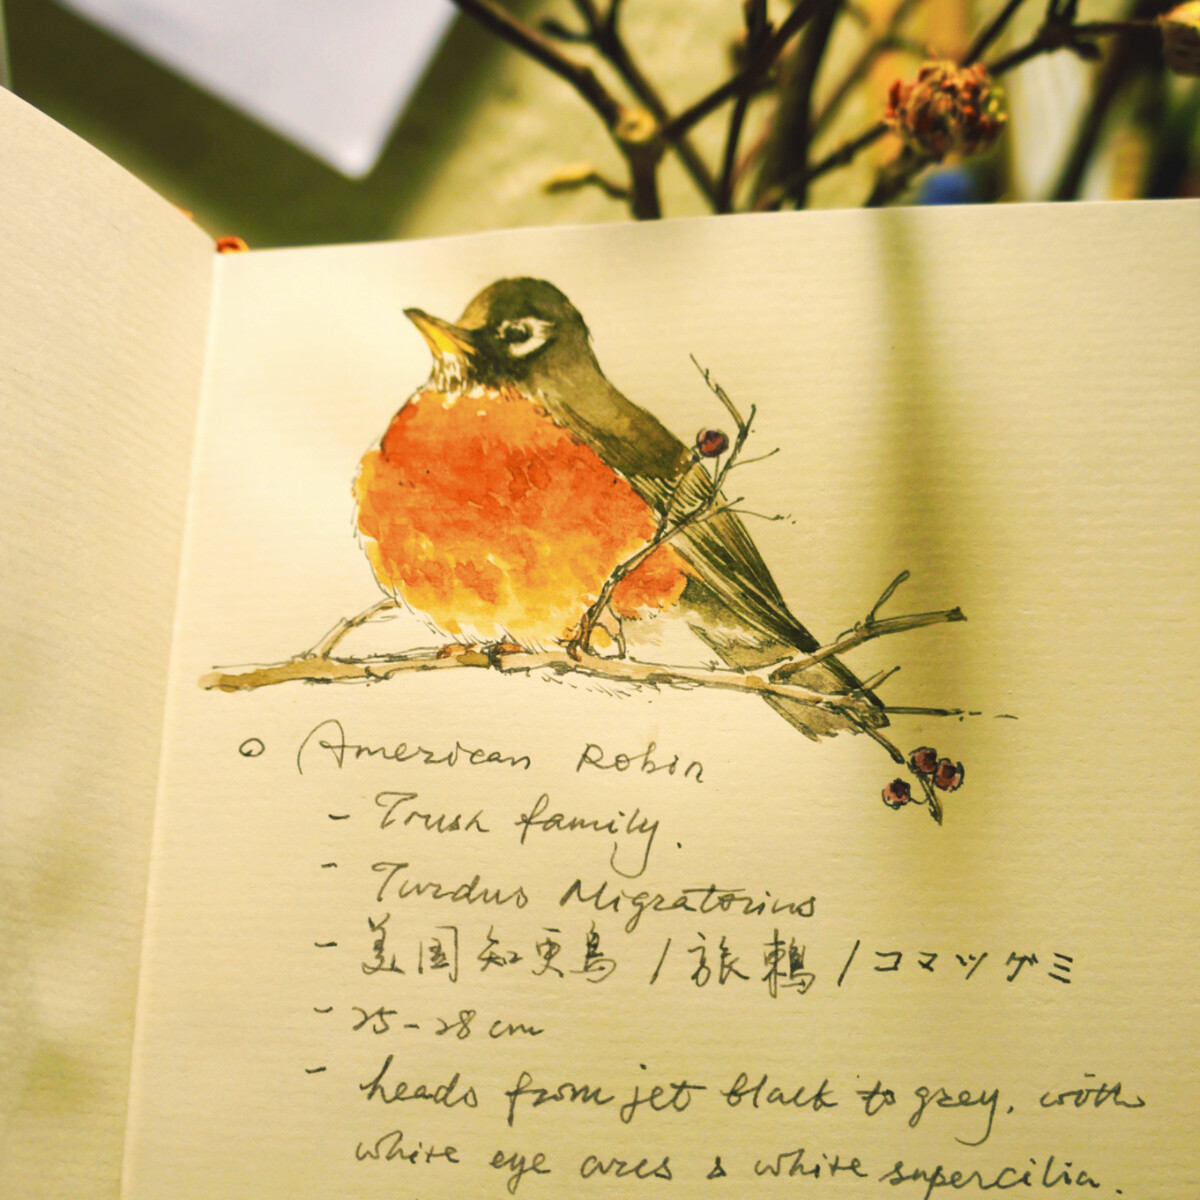 o American Robin
- Trush family.
- Turdus Migratorius
- 美国知更鸟 / 旅鶇 / コマツグミ
- 25-28 cm
- heads from jet black to grey, with
white eye arcs & white supercilia.